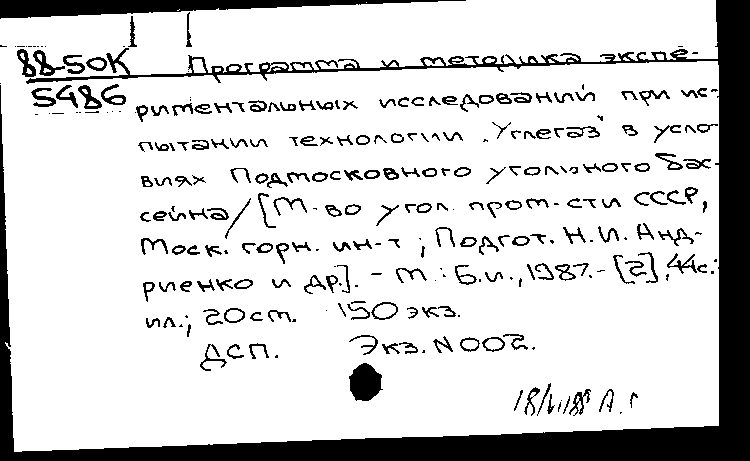 88-50К Программа и методика экспе-
5486 риментальных исследований при ис-
пытании технологии „Углегаз" в усло
виях Подмосковного угольного бас-
сейна/[М-во угол. пром-сти СССР,
Моск. горн. ин-т; Подгот. Н.И. Анд-
риенко и др.]. - М.: Б.и., 1987. - [2], 44с.:
ил.; 20 см. 150 экз.
ДСП. Экз. N 002.